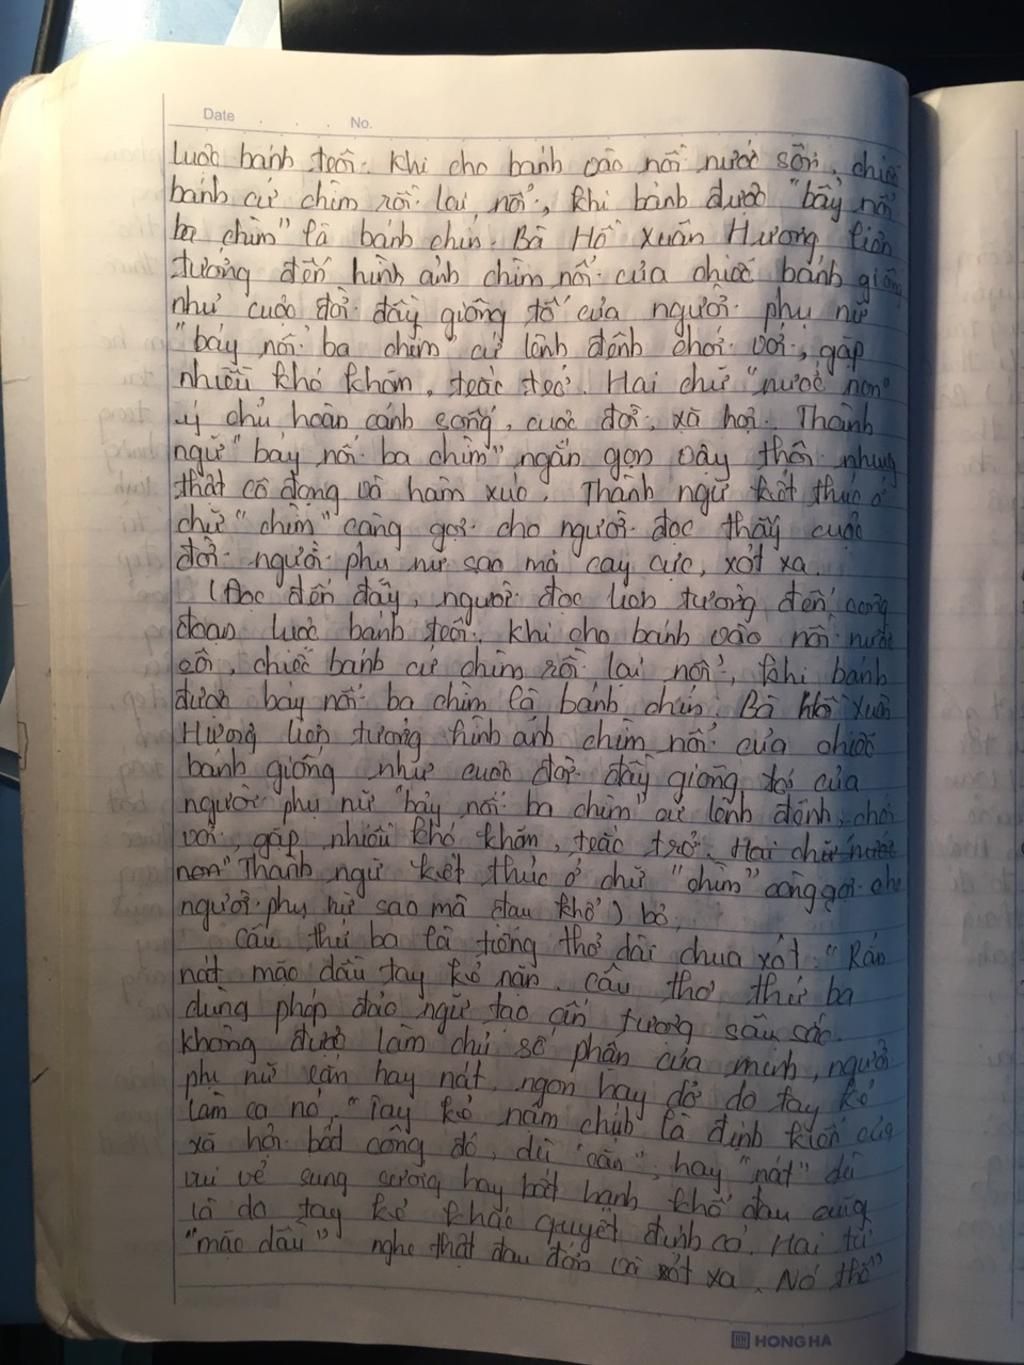 Date . . . No.
luộc bánh trôi. Khi cho bánh vào nồi nước sôi, chiếc
bánh cứ chìm rồi lại nổi, khi bánh được "bẩy nổi
ba chìm" là bánh chín. Bà Hồ Xuân Hương liên
tưởng đến hình ảnh chìm nổi của chiếc bánh giống
như cuộc đời đầy giông tố của người phụ nữ
"bảy nổi ba chìm" cứ lênh đênh chơi vơi, gặp
nhiều khó khăn, trắc trở. Hai chữ "nước non"
ý chủ hoàn cảnh sống, cuộc đời, xã hội. Thành
ngữ "bảy nổi ba chìm" ngắn gọn vậy thôi nhưng
thật cô đọng và hàm xúc. Thành ngữ kết thúc ở
chữ "chìm" càng gợi cho người đọc thấy cuộc
đời người phụ nữ sao mà cay cực, xót xa.
(Đọc đến đây, người đọc liên tưởng đến công
đoạn luộc bánh trôi. Khi cho bánh vào nồi nước
sôi, chiếc bánh cứ chìm rồi lại nổi, khi bánh
được bảy nổi ba chìm là bánh chín. Bà Hồ Xuân
Hương liên tưởng hình ảnh chìm nổi của chiếc
bánh giống như cuộc đời đầy giông tố của
người phụ nữ "bảy nổi ba chìm" cứ lênh đênh, chơi
vơi, gặp nhiều khó khăn, trắc trở. Hai chữ nước
non" Thành ngữ kết thúc ở chữ "chìm" càng gợi cho
người phụ nữ sao mà đau khổ) bỏ.
Câu thứ ba là tiếng thở dài chua xót: "Rắn
nát mặc dầu tay kẻ nặn. Câu thơ thứ ba
dùng phép đảo ngữ tạo ấn tượng sâu sắc.
Không được làm chủ số phận của mình, người
phụ nữ rắn hay nát, ngon hay dở do tay kẻ
làm ra nó. "Tay kẻ nặn chính là định kiến của
xã hội bất công đó, dù "rắn", hay "nát" dù
vui vẻ sung sướng hay bất hạnh khổ đau cũng
là do tay kẻ khác quyết định cả. Hai từ
"mặc dầu" nghe thật đau đớn và xót xa. Nó thể
HONG HA